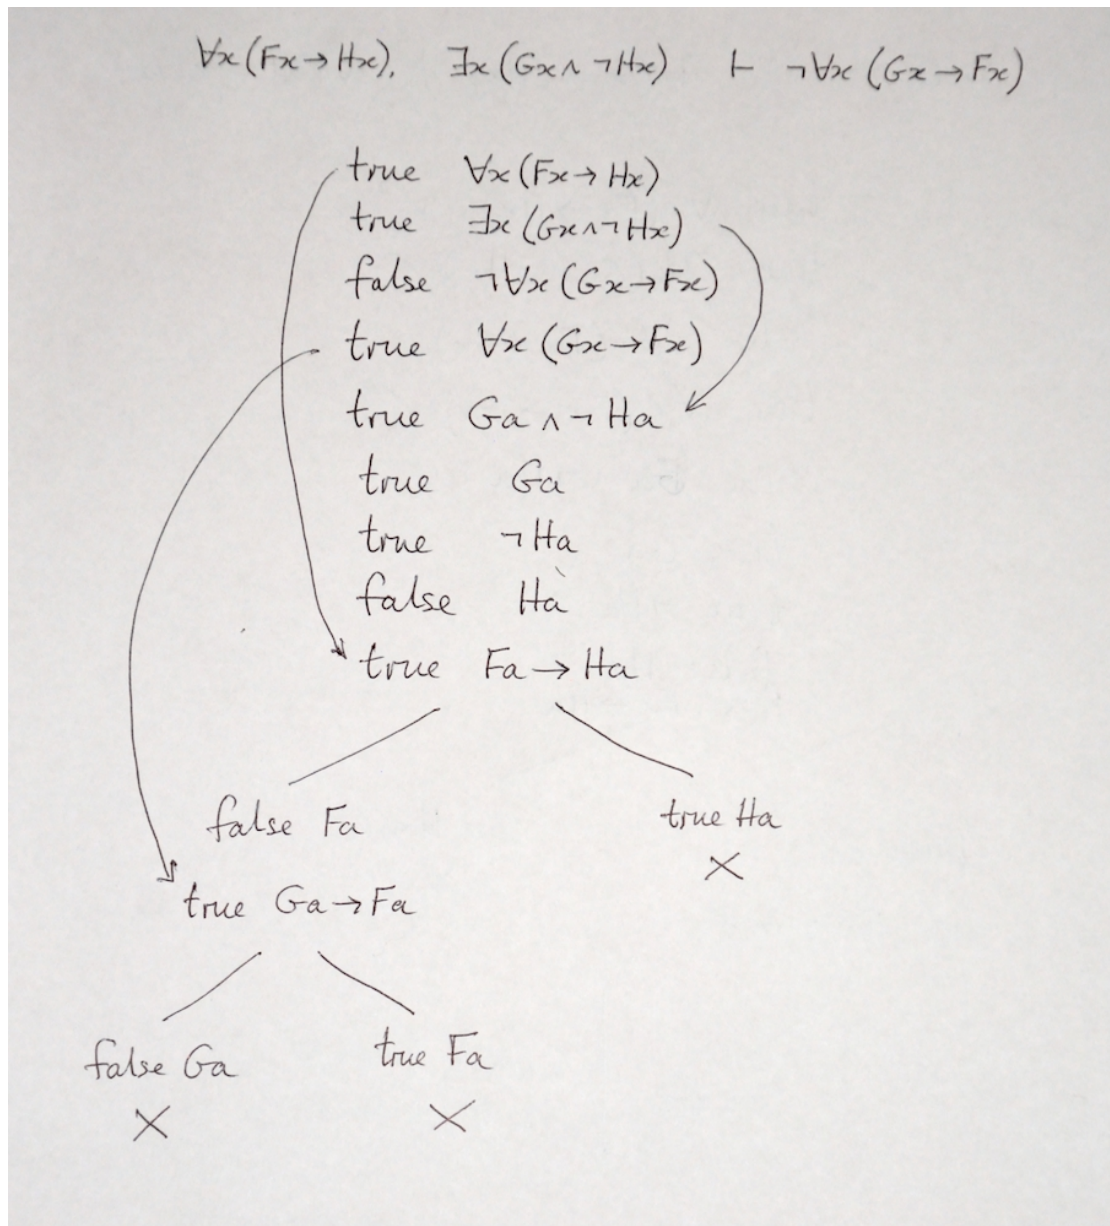 ∀x(Fx→Hx), ∃x(Gx∧¬Hx) ⊢ ¬∀x(Gx→Fx)
true ∀x(Fx→Hx)
true ∃x(Gx∧¬Hx)
false ¬∀x(Gx→Fx)
true ∀x(Gx→Fx)
true Ga∧¬Ha
true Ga
true ¬Ha
false Ha
true Fa→Ha
false Fa
true Ha
×
true Ga→Fa
false Ga
true Fa
×
×